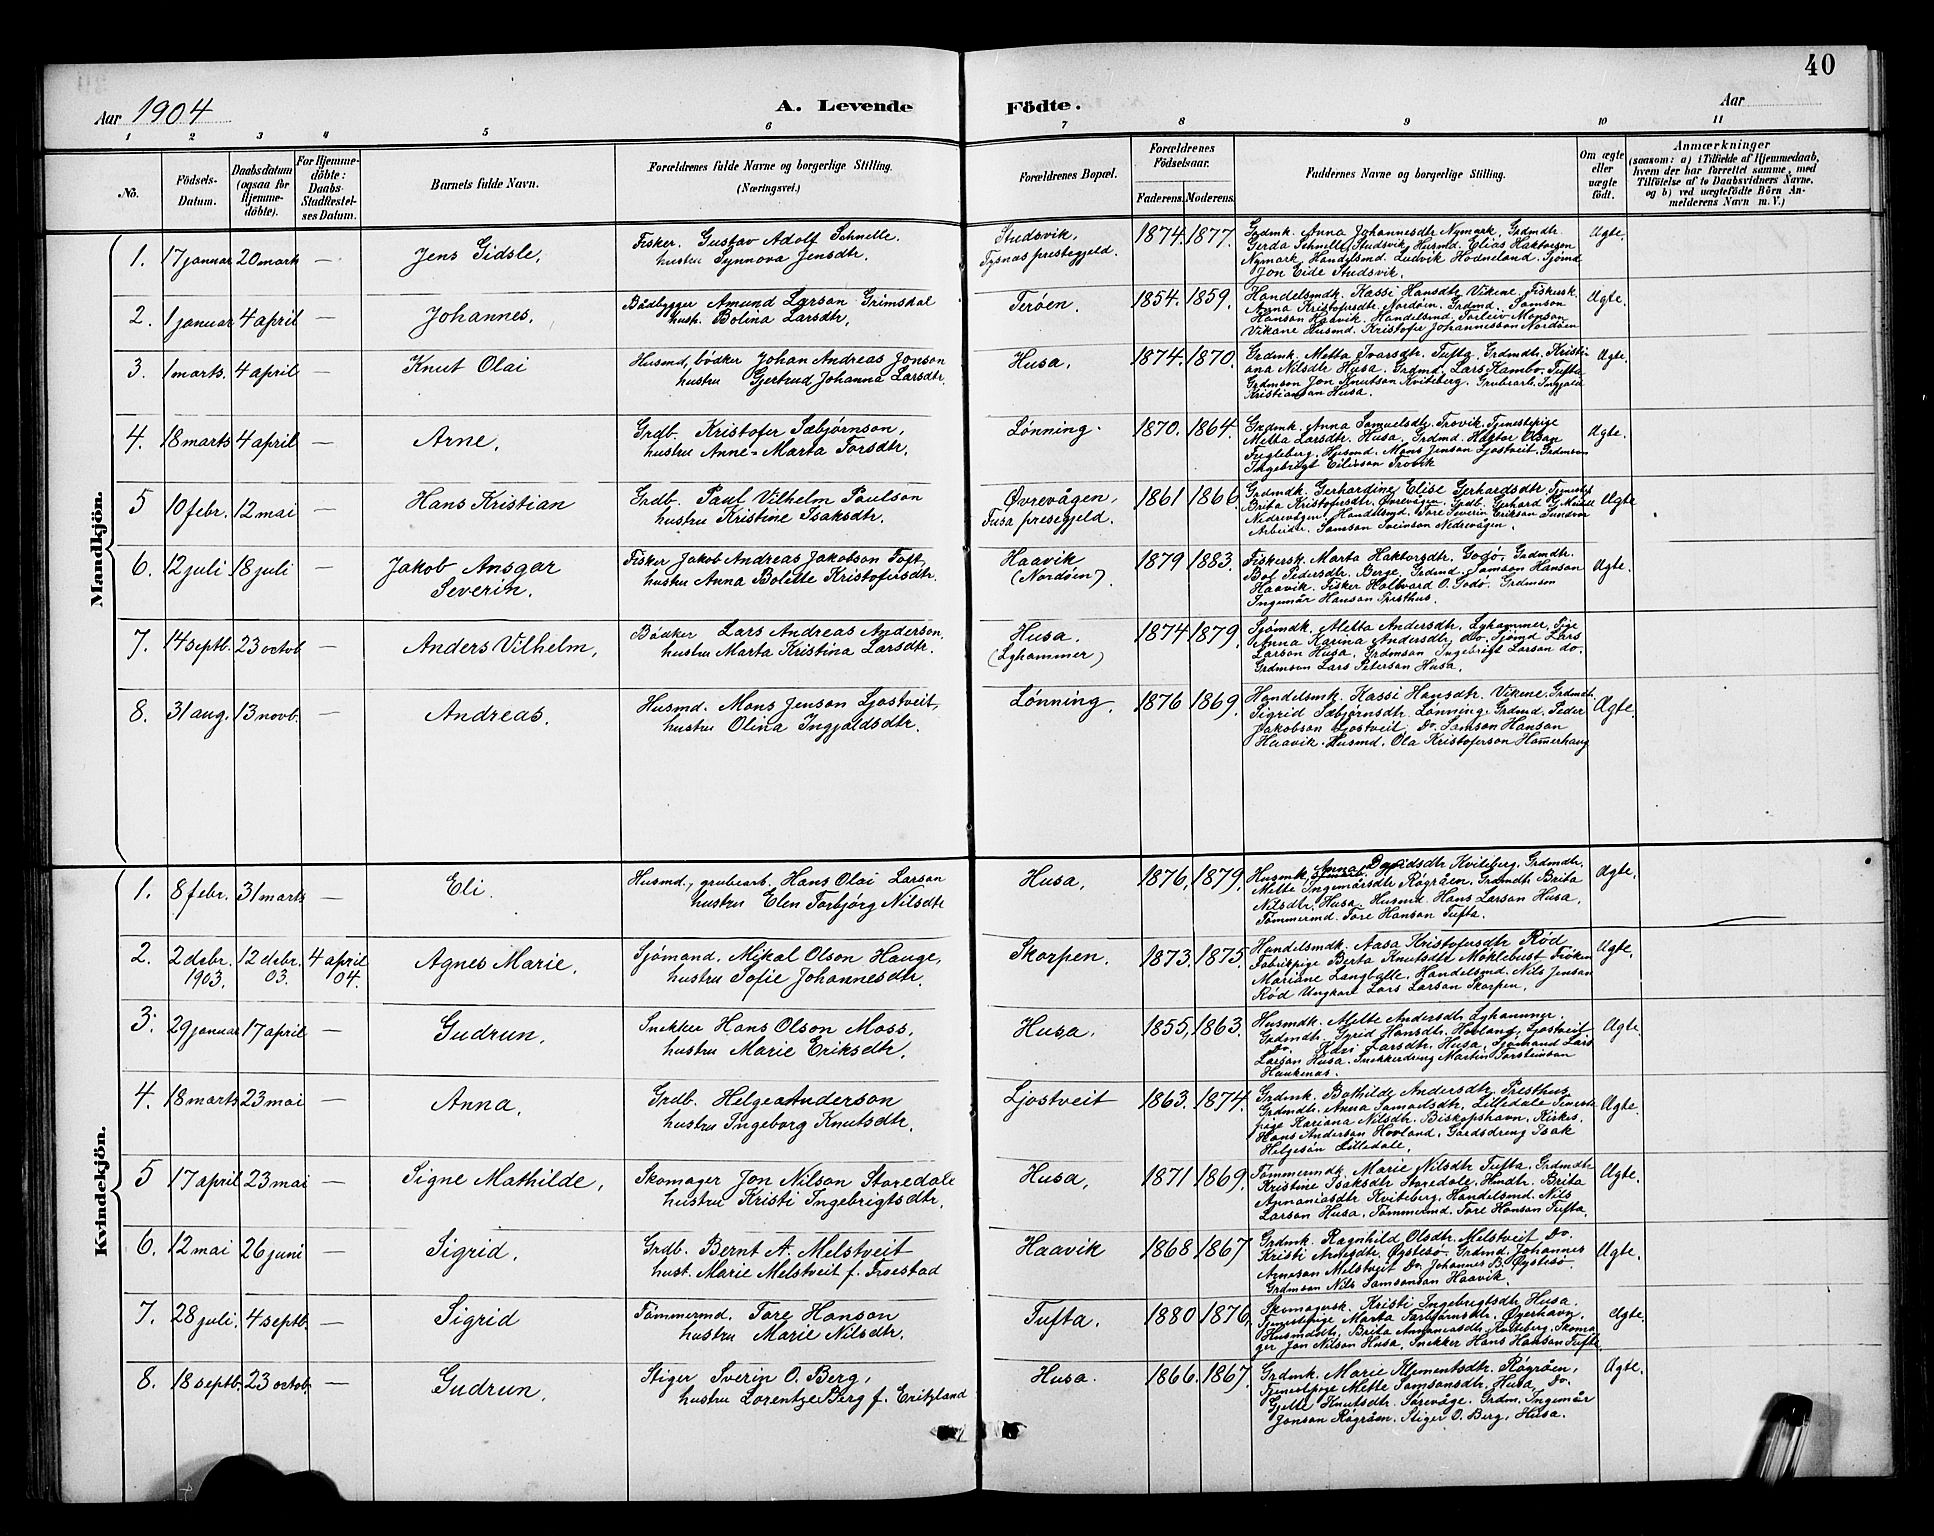 40
Aar 1904
A. Levende Födte.
Aar
1 2 3 4 5 6 7 8 9 10 11
No.
Födsels-Datum.
Daabsdatum (ogsaa for Hjemmedöbte).
For Hjemmedöbte: Daabs-Stadfæstelses Datum.
Barnets fulde Navn.
Forældrenes fulde Navne og borgerlige Stilling. (Næringsvei.)
Forældrenes Bopæl.
Forældrenes Födselsaar.
Faderens. Moderens.
Faddernes Navne og borgerlig Stilling.
Om ægte eller uægte födt.
Anmærkninger
(saasom: a) i Tilfælde af Hjemmedaab, hvem der har forrettet samme, med Tilföielse af to Daabsvidners Navne, og b) ved uægtefödte Börn Anmelderens Navn m. V.)
Mandkjön.
1. 17 januar 20 mark — Jens Gidsle. Fisker. Gustav Adolf Schnelle.
hustru Synnova Jensdtr.
Studsvik,
Tysnæs prestegjeld.
1874. 1877.
Grdmk. Anna Johannesdtr Nymark, Grdmdtr.
Gerda Schnelle Studsvik, Husmd. Elias Haktorson
Nymark, Handelsmd. Ludvik Hodneland. Sjömd
Jon Eide Studsvik.
Ægte.
2. 1 januar 4 april — Johannes, Bådbygger Amund Larson Grimsdal
hust. Bolina Larsdtr,
Teröen.
1854. 1859.
Handelsmdk. Kassi Hansdtr Vikene, Fiskersk.
Anna Kristofersdtr Nordöen, Grdmd. Samson
Hanson Haavik, Handelsmd. Torleiv Monson
Vikane Husmd. Kristofer Johannesson Nordöen
Ægte.
3. 1 marts. 4 april — Knut Olai Husmd, bødker Johan Andreas Jonson
hustru Gjertrud Johanna Larsdtr.
Husa,
1874. 1870.
Grdmk. Metta Ivarsdtr. Tufta, Grdmdtr. Kristi-
ana Nilsdtr Husa. Grdmd. Lars Kambo, Tufta
Grdmson Jon Knutson Kviteberg, Grubearb. Ingjald
Kristianson Husa.
Ægte.
4. 18 marts 4 april — Arne, Grdb. Kristofer Sæbjørnson,
hustru Anne-Marta Torsdtr.
Lønning.
1870. 1864.
Grdmk. Anna Samuelsdtr, Trovik, Tjenestpige
Metta Larsdtr. Husa, Grdmd. Haktor Olson
Fugleberg, Husmd. Mons Jenson Ljostveit, Grdmson
Ingebrigt Eilivson Trovik
Ægte.
5 10 febr. 12 mai — Hans Kristian Grdb. Paul Vilhelm Paulson
hustru Kristine Isaksdtr.
Øvrevågen,
Fusa presegjeld.
1861 1866
Grdmdk. Gerhardine Elise Gerhardsdtr,
Brita Kristofersdtr. Øvrevågen, Grdb. Gerhard
Nedrevågen, Handelsmd. Tore Severin Erikson Sundvor
Arbeidr. Samson Sveinson Nedrevågen.
Ægte
6. 12 juli 18 juli — Jakob Ansgar
Severin. Fisker Jakob Andreas Jakobson Toft,
hustru Anna Bolette Kristofersdtr.
Haavik
(Nordöen).
1879 1883.
Fiskersk. Marta Haktorsdtr. Godø, Grdmdtr.
Bol Pedersdtr. Berge, Grdmd Samson Hanson
Haavik. Fisker Halvard O. Godø. Grdmson
Ingemår Hanson Presthus.
Ægte.
7. 14 septb. 23 octob — Anders Vilhelm, Bødker Lars Andreas Anderson,
hustru Marta Kristina Larsdtr.
Husa.
(Lyhammer)
1874 1879.
Sjömdk. Metta Andersdtr. Lyhammer, Pige
Anna Karina Andersdtr. do. Sjömd Lars
Larson Husa, Grdmson Ingebrigt Larson do.
Grdmson Lars Peterson Husa.
Ægte.
8. 31 aug. 13 novb. — Andreas. Husmd. Mons Jenson Ljostveit,
hustru Olina Ingjaldsdtr.
Lønning.
1876 1869.
Handelsmk. Kassi Hansdtr. Vikene, Grdmdtr.
Sigrid Sæbjørnsdtr. Lønning. Grdmd. Peder
Jakobson Ljostveit, Do. Samson Hanson
Haavik. Husmd. Ola Kristoferson Hammerhaug
Ægte.
Kvindekjön.
1. 8 febr. 31 marts — Eli. Husmd., grubearb. Hans Olai Larson
hustru Elen Torbjørg Nilsdtr
Husa,
1876, 1879.
Husmk, Anna Kviteberg, Grdmdtr.
Mette Ingemårsdtr Røgråen, Grdmdtr Brita
Nilsdtr. Husa. Husmd. Hans Larson Husa,
Tömmermd. Tore Hanson Tufta.
Ægte.
2. 2 debr. 1903. 12 debr. 03. 4 april 04. Agnes Marie, Sjømand. Mikal Olson Hauge,
hustru Sofie Johannesdtr.
Skorpen,
1873. 1875.
Handelsmdk. Aasa Kristofersdtr Rød
Fabrikpige Berta Knutsdtr Møklebust
Mariane Langballe, Handelsmd. Nils Jenson
Rød Ungkarl Lars Larson Skorpen,
Ægte.
3. 29 januar 17 april — Gudrun, Snekker Hans Olson Moss,
hustru Marie Eriksdtr.
Husa.
1855, 1863.
Husmdk. Mette Andersdtr Lyhammer.
Grdmdtr. Gyrid Hansdtr. Hovland, Ljostveit
Do. Kari Larsdtr. Husa, Sjømand Lars
Larson Husa. Snekkerdreng Martin Torsteinson
Haukenæs.
Ægte.
4. 18 marts 23 mai — Anna. Grdb. Helge Anderson
hustru Ingeborg Knutsdtr.
Ljostveit
1863. 1874.
Grdmk. Bothilde Andersdtr, Presthus,
Grdmdtr. Anna Lilledale
pige Kariana Nilsdtr. Biskopshavn,
Hans Anderson Hovland, Gårdsdreng Isak
Helgesøn Lilledale.
Ægte.
5 17 april 23 mai — Signe Mathilde, Skomager Jon Nilson Storedale
hustru Kristi Ingebrigtsdtr.
Husa,
1871 1869.
Tömmermdk. Marie Nilsdtr Tufta. Grdmdtr
Kristine Isaksdtr Storedale, Hmdtr. Brita
Ananiasdtr. Kviteberg, Handelsmd. Nils
Larson Husa. Tömmermd. Tore Hanson Tufta,
Ægte.
6. 12 mai 26 juni — Sigrid. Grdb. Bernt A. Melstveit
hust. Marie Melstveit f. Froestad
Haavik
1868 1867
Grdmk. Ragnhild Olsdtr. Melstveit Do.
Kristi Arnesdtr. Øystesø. Grdmd. Johannes
Arneson Melstveit Do. Johannes B. Øystesø.
Grdmson Nils Samsonson Haavik.
Ægte.
7. 28 juli. 4 septb. — Sigrid Tömmermd. Tore Hanson
hustru Marie Nilsdtr.
Tufta.
1880 1876,
Skomagersk. Kristi Ingebrigtsdtr. Husa.
Tjenestpige Marta Torbjørnsdtr. Øyerhavn.
Husmdsdtr, Brita Ananiasdtr. Kviteberg. Skoma
ger Jon Nilson Husa, Snekker Hans Hanson Tufte
Ægte.
8. 18 septb. 23 octob — Gudrun. Stiger Sverin O. Berg,
hustru Lorentze Berg f. Eriksland
Husa.
1866. 1867.
Grdmk. Marie Klementsdtr. Røgråen,
Tjenestpige Mette Samsonsdtr, Husa, Do.
Gjelte Knutsdtr. Sørevåge. Grdm. Ingemår
Jonson Røgråen, Stiger O. Berg, Husa.
Ægte.